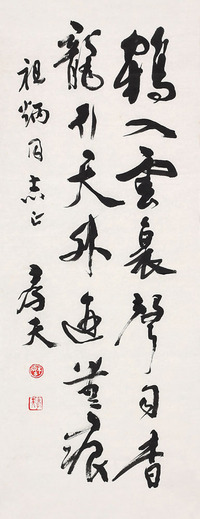 鶴入雲裏聲自杳
龍行天外迹無痕
祖炳同志正
天